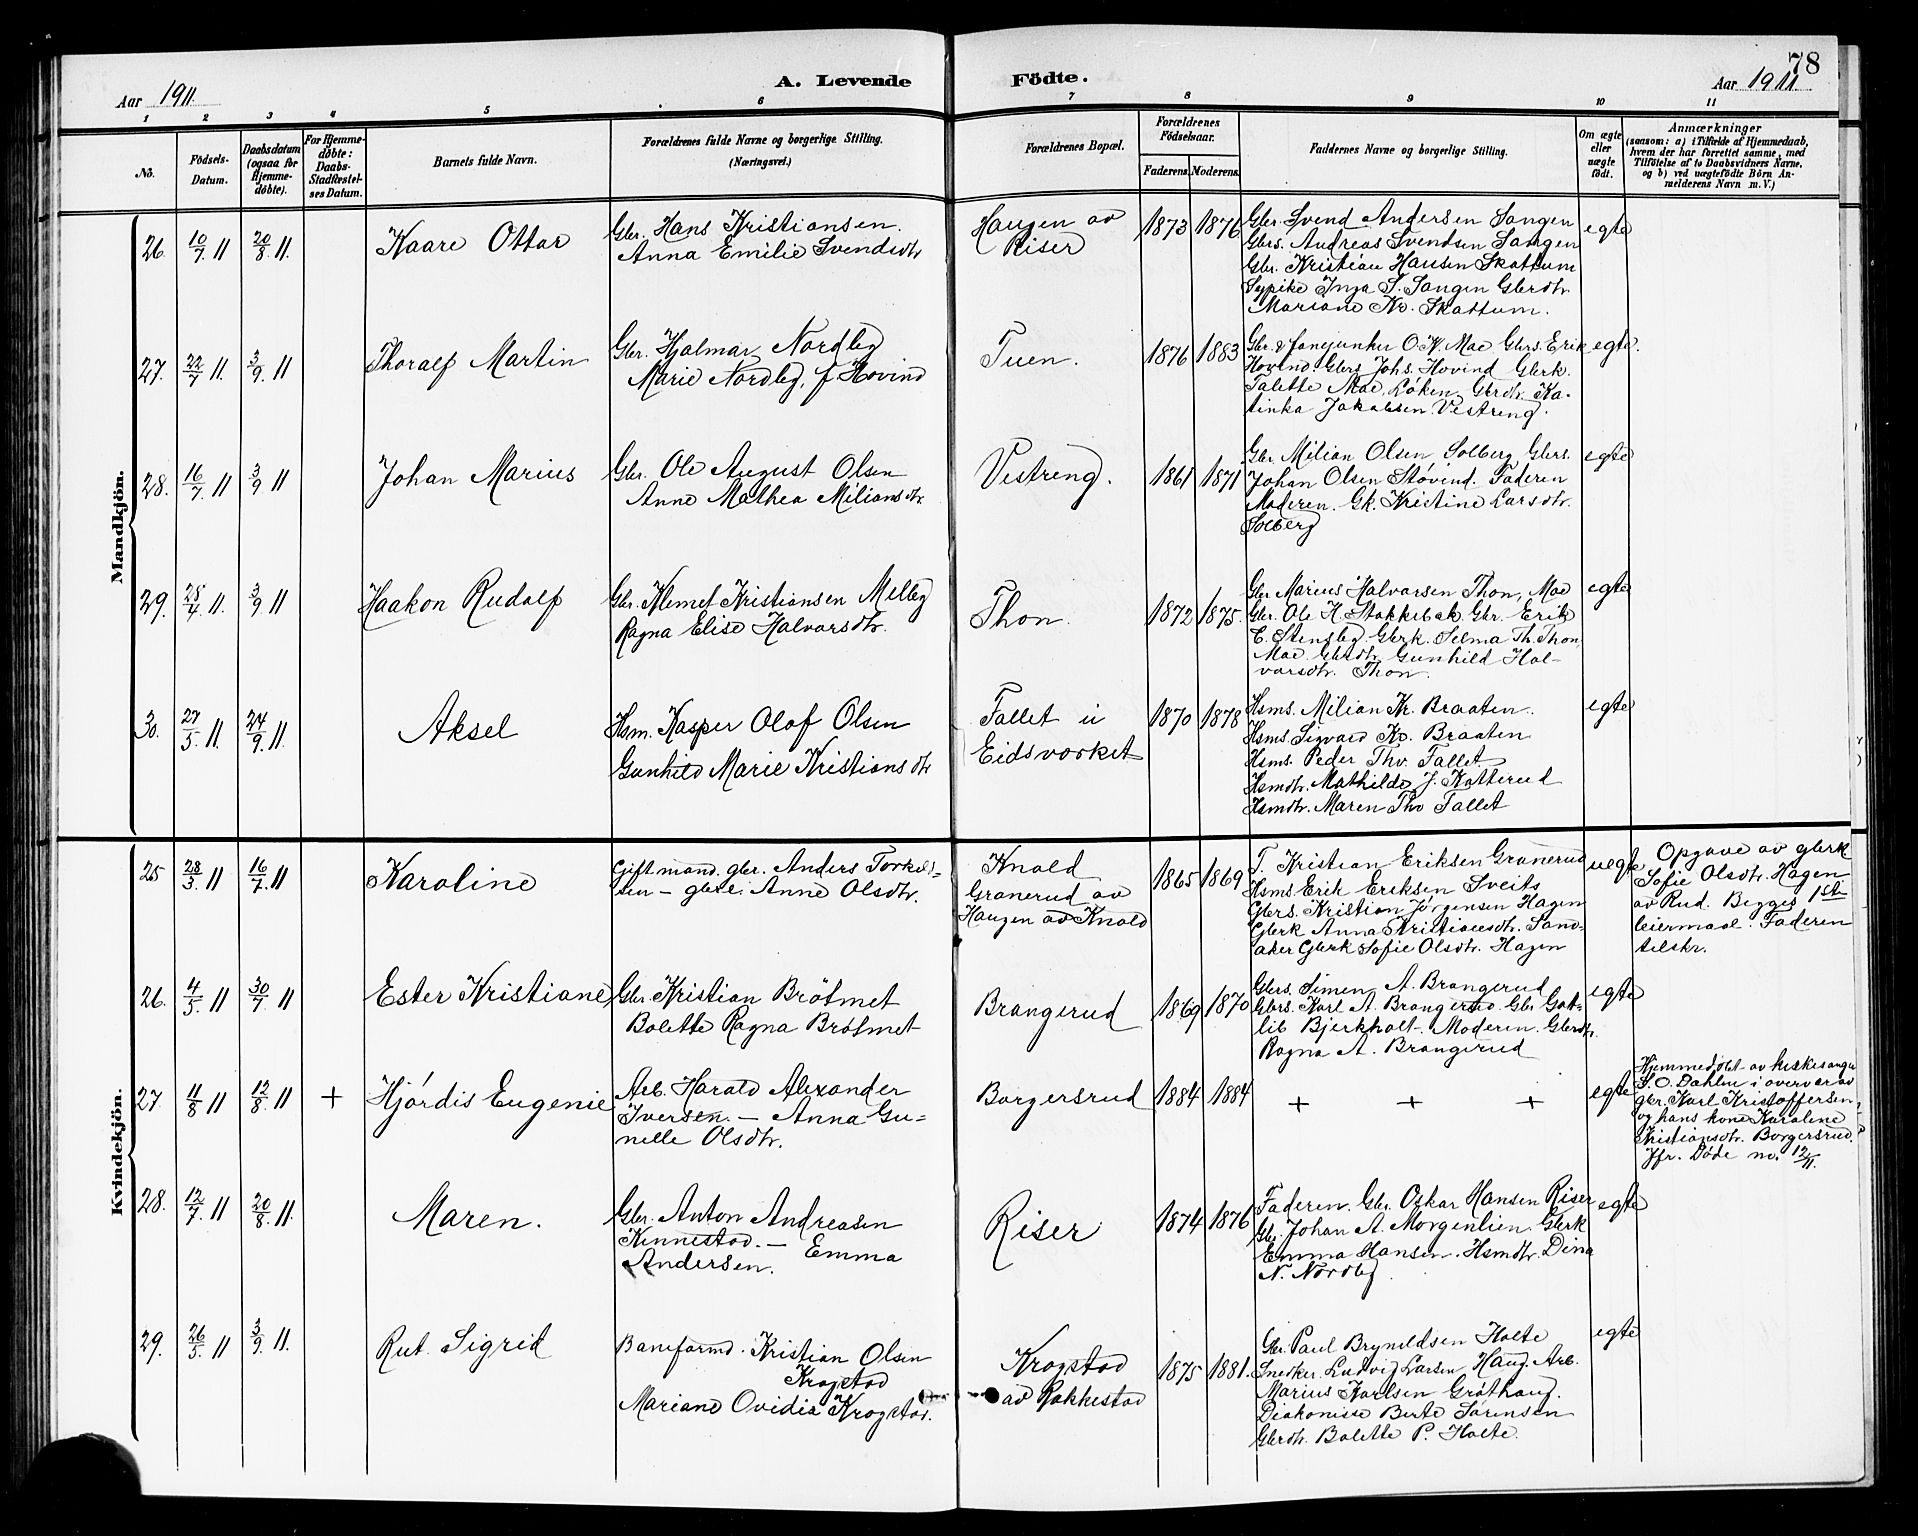 78
Aar 1911.
A. Levende
Födte.
Aar 1911
1 2 3 4 5 6 7 8 9 10 11
No.
Födsels-
Datum.
Daabsdatum
(ogsaa for
Hjemme-
döbte).
For Hjemme-
döbte:
Daabs-
Stadfæstel-
ses Datum.
Barnets fulde Navn.
Forældrenes fulde Navne og borgerlige Stilling.
(Næringsvei.)
Forældrenes Bopæl.
Forældrenes
Födselsaar.
Faderens. Moderens.
Faddernes Navne og borgerlige Stilling.
Om ægte
eller
uægte
födt.
Anmærkninger
(saasom: a) i Tilfælde af Hjemmedaab,
hvem der har forrettet samme, med
Tilföielse af to Daabsvidners Navne,
og b) ved uægtefödte Börn An-
melderens Navn m. V.)
Mandkjön.
26. 10/7 11 20/8 11.
Kaare Ottar
Gbr. Hans Kristiansen.
Anna Emilie Svendsdtr
Haugen av
Riser
1873 1876
Gbr. Svend Andersen Sangen
Gbrs. Andreas Svendsen Sangen
Gbr. Kristian Hansen Skattum
Sypike Inga S. Sangen Gbrdtr.
Mariane Kr. Skattum.
egte
27. 22/7 11. 3/9 11
Thoralf Martin
Gbr. Hjalmar Nordby
Marie Nordby, f. Hovind
Tuen.
1876 1883
Gbr. & fanejunker O. K. Moe Gbrs. Erik
Hovind. Gbrs Johs. Hovind Gbrk.
Talette Moe, Løken, Gbrdtr. Ka-
tinka Jakobsen Vestreng.
egte.
28. 16/7 11 3/9 11
Johan Marius
Gbr. Ole August Olsen
Anne Mathea Miliansdtr.
Vestreng.
1861 1871
Gbr. Milian Olsen Solberg Gbrs.
Johan Olsen Støvind. Faderen
Moderen. Gk. Kristine Larsdtr.
Solberg
egte
29. 28/4 11. 3/9 11
Haakon Rudolf
Gbr. Klemet Kristiansen Melby
Ragna Elise Halvorsdtr.
Thon.
1872 1875.
Gbr. Marius Halvorsen Thon, Moe
Gbr. Ole H. Stokkebæk Gbr. Erik
E. Stensby Gbrk. Selma Th. Thon,
Moe Gbrdtr. Gunhild Hal-
vorsdtr. Thon.
egte
30. 27/5 11. 24/9 11.
Aksel
Hsm. Kasper Olaf Olsen
Gunhild Marie Kristiansdtr
Fallet u
Eidsvorket
1870 1878
Hsms. Milian Kr. Braaten.
Hsms. Sigvard Kr. Braaten
Hsms. Peder Thv. Fallet
Hsmdtr. Mathilde J. Katterud
Hsmdtr. Maren Thv Fallet
egte
Kvindekjön.
25 28/3 11 16/7 11
Karoline
Gift mand. gbr. Anders Torkild-
sen – gbrk. Anne Olsdtr.
Knold
Granerud av
Haugen av Knold
1865 1869
T. Kristian Eriksen Granerud
Hsms. Erik Eriksen Sveits
Gbrs. Kristian Jørgensen Hagen
Gbrk Anna Kristiansdtr. Sand-
aker Gbrk Sofie Olsdtr. Hagen
uegte
Opgave av gbrk
Sofie Olsdtr. Hagen
av Rud. Begges 1ste
leiermaal. Faderen
tilskr.
26. 4/5 11 30/7 11
Ester Kristiane
Gbr. Kristian Brøtmet
Bolette Ragna Brøtmet
Brangerud
1869 1870
Gbrs. Simen A. Brangerud
Gbrs. Karl A. Brangerud. Gbr. Got-
lib Bjerkholt. Moderen. Gbrdtr.
Ragna A. Brangerud
egte
27. 11/8 11 12/8 11 +
Hjórdis Eugenie
Arb. Harald Alexander
Iversen. – Anna Gu-
nelle Olsdtr.
Borgersrud
1884 1884
+ + +
egte
Hjemmedøbt av kirkesanger
S. O. Dahlen i overvær av
gbr. Karl Kristoffersen
og hans kone Karoline
Kristiansdtr. Borgersrud.
Jfr. Døde no. 12/11.
28. 12/7 11 20/8 11.
Maren.
Gbr. Anton Andreasen
Kinnestad. – Emma
Andersen.
Riser
1874 1876
Faderen. Gbr. Oskar Hansen Riser
Gbr. Johan A. Morgenlien. Gbrk
Emma Hansen. Hsmdtr. Dina
N. Nordby.
egte
29. 26/5 11 3/9 11.
Rut Sigrid
Baneformd. Kristian Olsen
Krogstad
Mariane Ovidia Krogstad.
Krogstad
av Rakkestad
1875 1881.
Gbr. Paul Bryneldsen Holte
Snedker Ludvig Larsen Haug. Arb.
Marius Karlsen Grøthaug.
Diakonisse Berte Sørensen
Gbrdtr. Bolette P. Holte.
egte